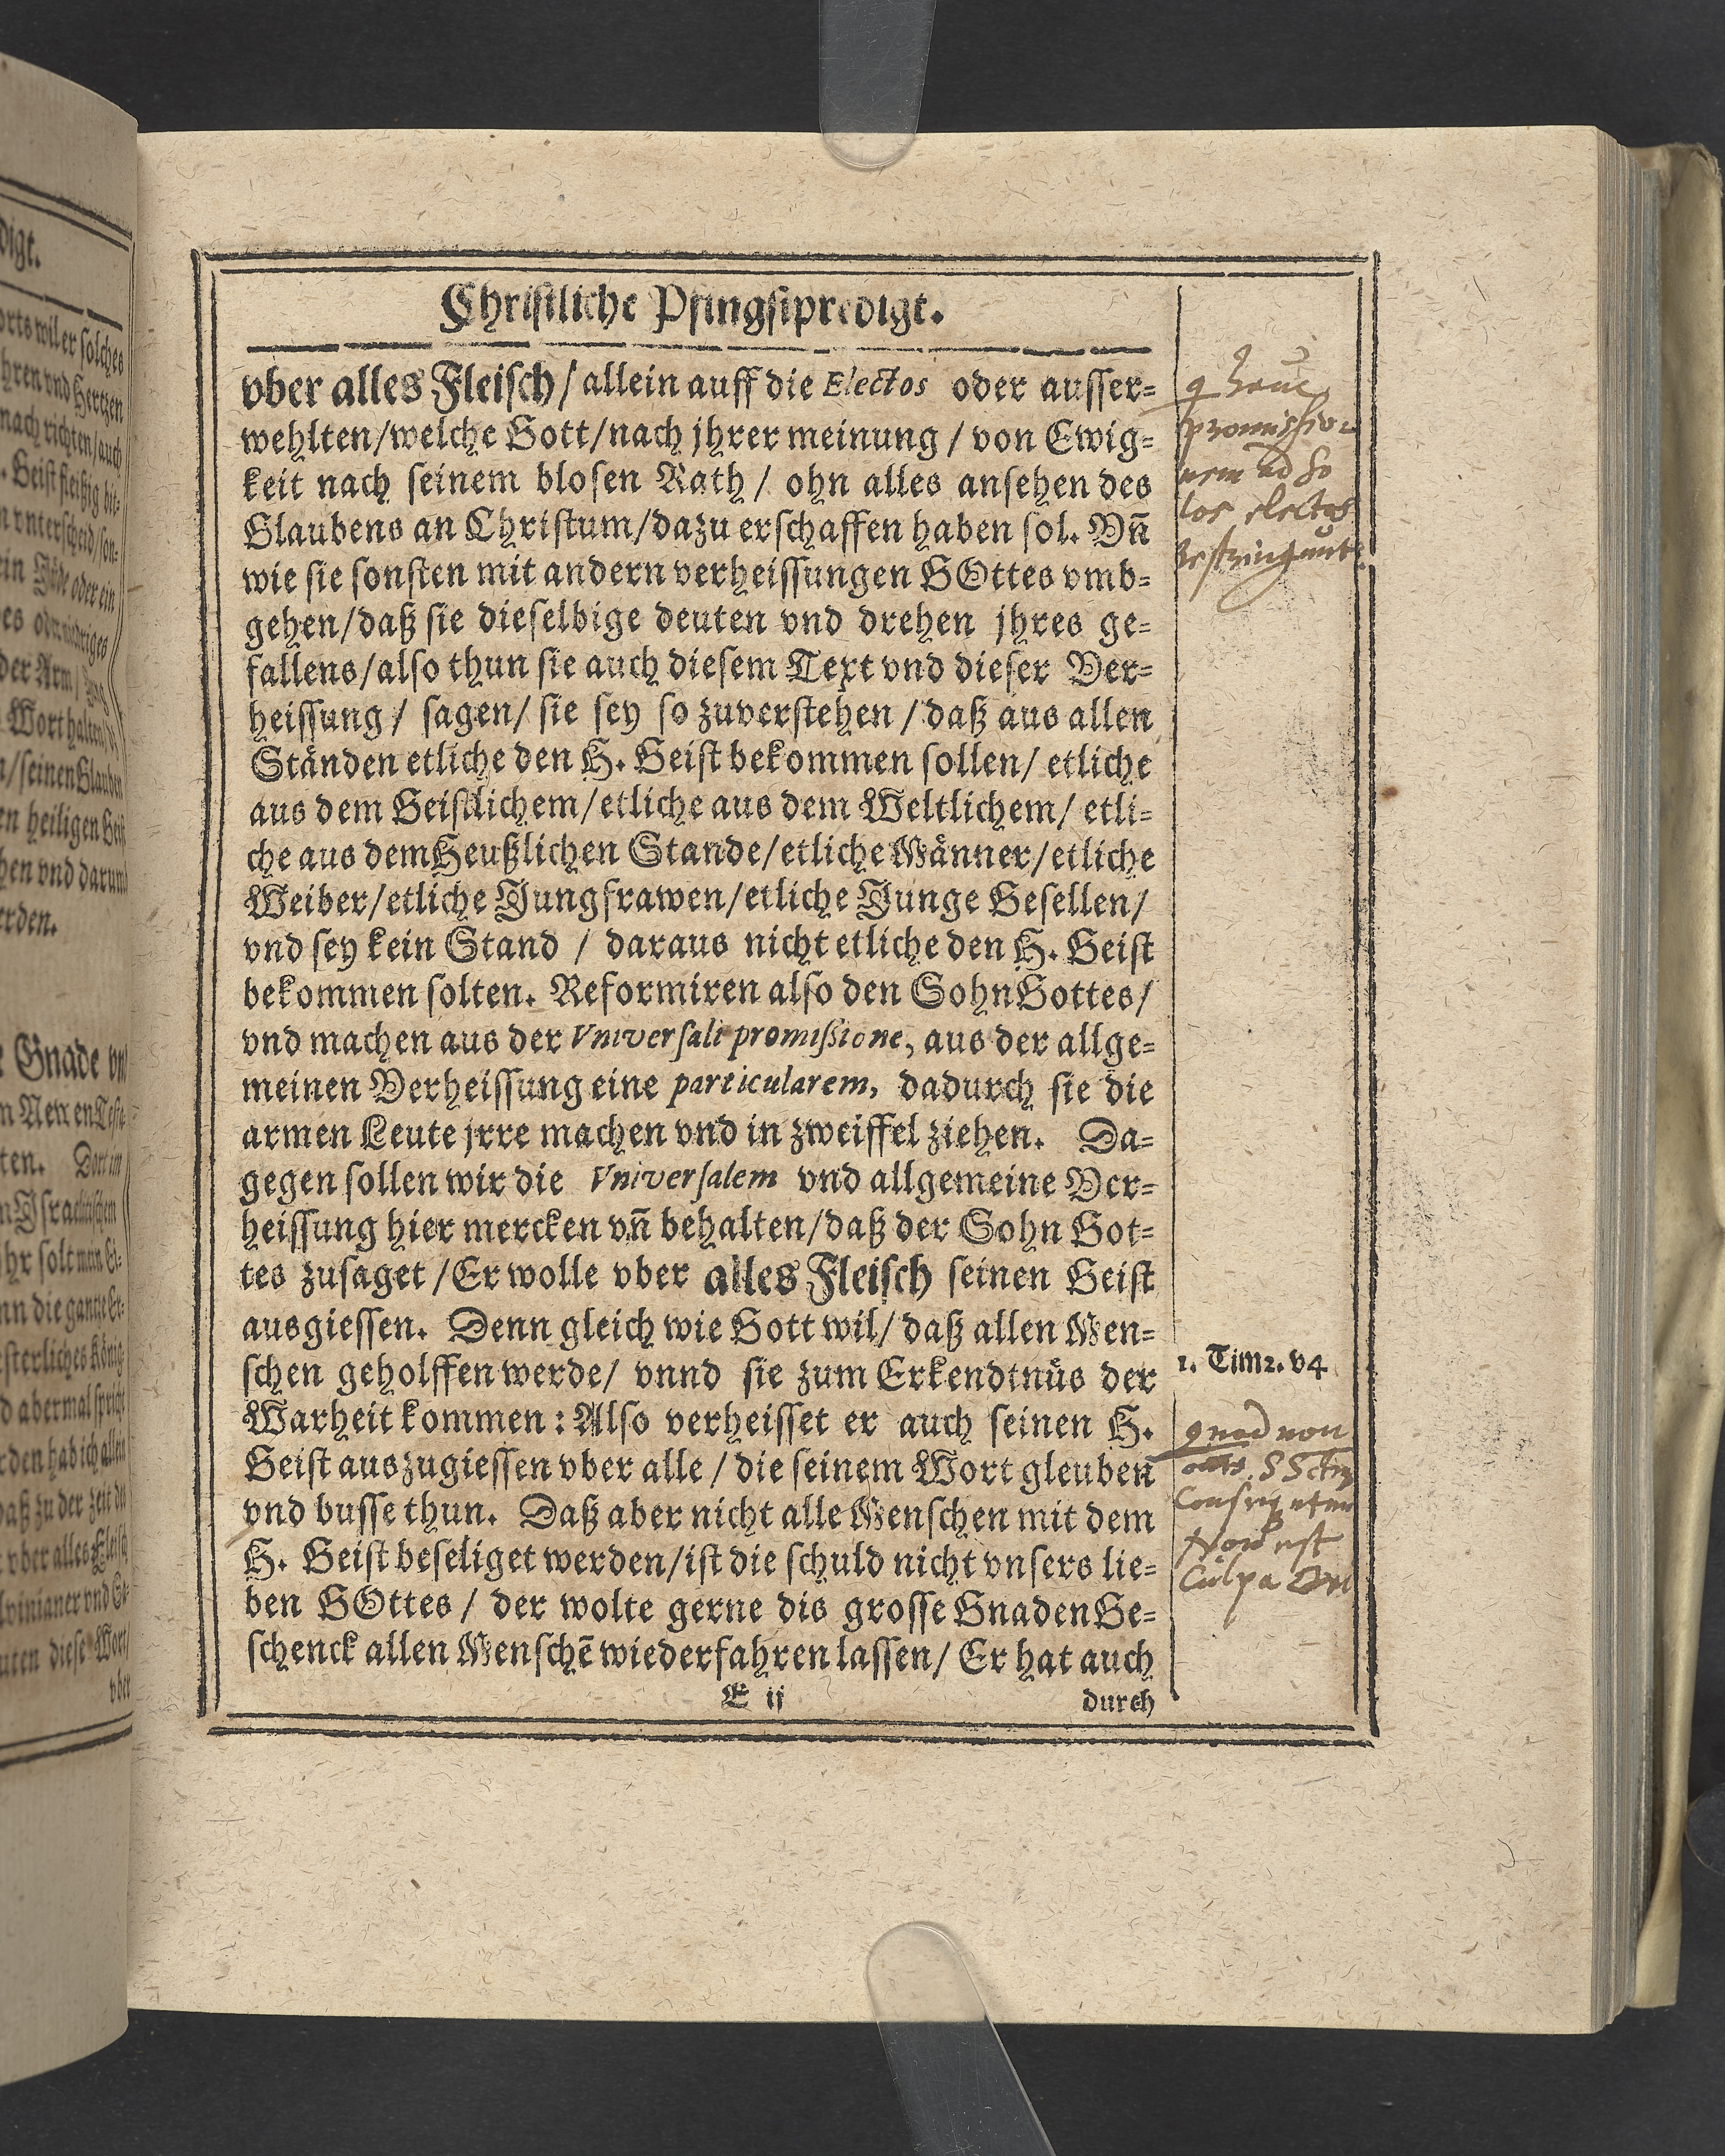 Christliche Pfingstpredigt.
vber alles Fleisch/ allein auff die Electos oder ausser=
wehlten/welche Gott/nach jhrer meinung / von Ewig=
keit nach seinem blosen Rath / ohn alles ansehen des
Glaubens an Christum/dazu erschaffen haben sol. Vñ
wie sie sonsten mit andern verheissungen GOttes vmb=
gehen/daß sie dieselbige deuten vnd drehen jhres ge=
fallens/also thun sie auch diesem Text vnd dieser Ver=
heissung / sagen/ sie sey so zuverstehen /daß aus allen
Ständen etliche den H. Geist bekommen sollen/ etliche
aus dem Geistlichem/etliche aus dem Weltlichem/ etli=
che aus dem Heußlichen Stande/etliche Männer/etliche
Weiber/etliche Jungfrawen/etliche Junge Gesellen/
vnd sey kein Stand / daraus nicht etliche den H. Geist
bekommen solten. Reformiren also den Sohn Gottes/
vnd machen aus der Vniversali promißione, aus der allge=
meinen Verheissung eine particularem, dadurch sie die
armen Leute jrre machen vnd in zweiffel ziehen. Da=
gegen sollen wir die Vniversalem vnd allgemeine Ver=
heissung hier mercken vñ behalten/daß der Sohn Got=
tes zusaget /Er wolle vber alles Fleisch seinen Geist
ausgiessen. Denn gleich wie Gott wil/ daß allen Men=
schen geholffen werde/ vnnd sie zum Erkendtnüs der
Warheit kommen: Also verheisset er auch seinen H.
Geist auszugiessen vber alle / die seinem Wort gleuben
vnd busse thun. Daß aber nicht alle Menschen mit dem
H. Geist beseliget werden/ist die schuld nicht vnsers lie=
ben GOttes / der wolte gerne dis grosse Gnaden Ge=
schenck allen Menschē wiederfahren lassen/ Er hat auch
E ij
durch
promission
nem ad so
los electos
restringunt.
1. Tim 2. v 4
quod non
Non est
Culpa Dei
digt.
vber